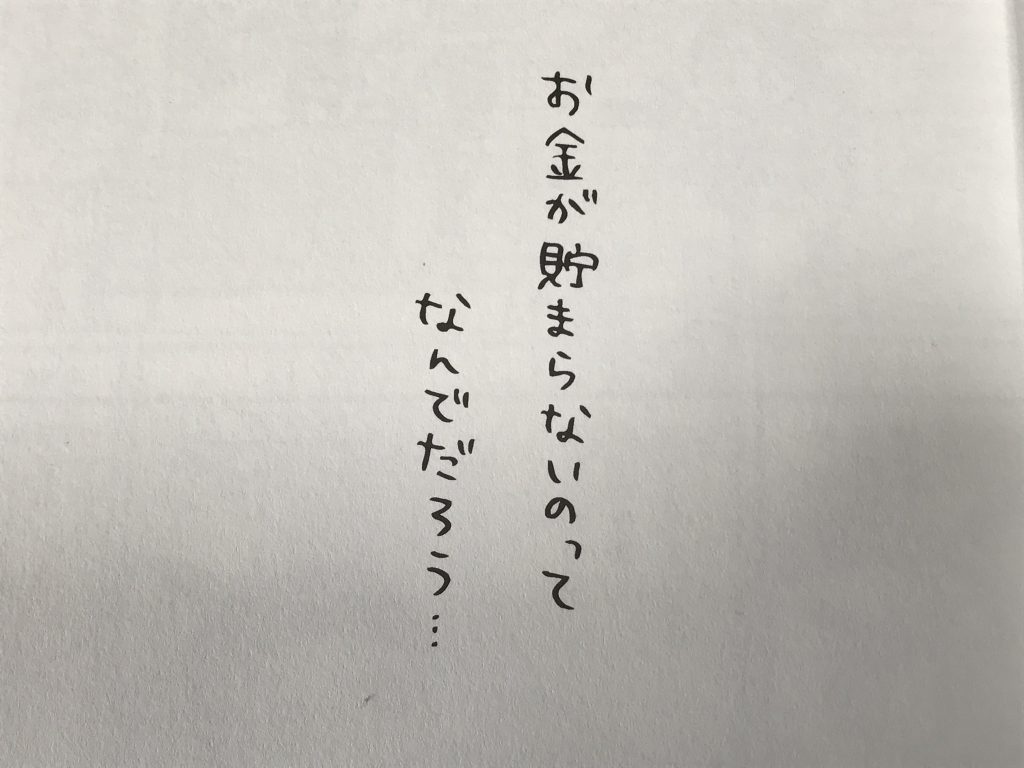 お金が貯まらないのって
なんでだろう…